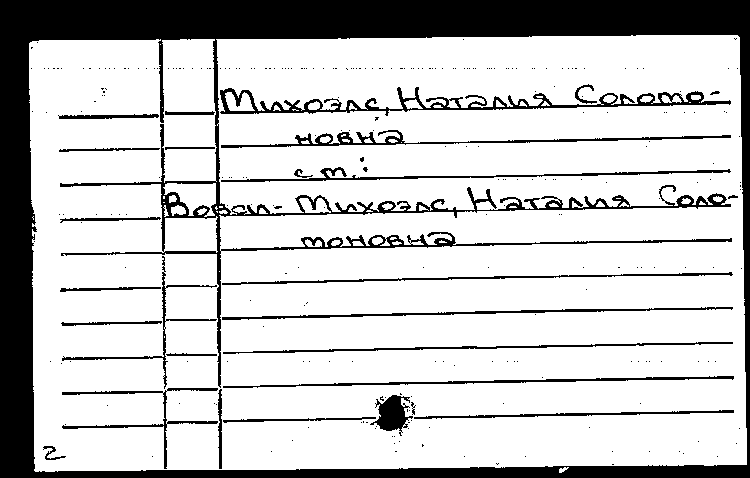 Михоэлс, Наталия Соломо-
новна
см.:
Вовси-Михоэлс, Наталия Соло-
моновна
2